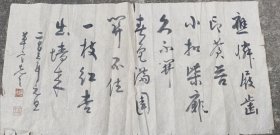 應憐屐齒
印蒼苔
小扣柴扉
久不開
春色滿園
關不住
一枝紅杏
出墙来
年元旦